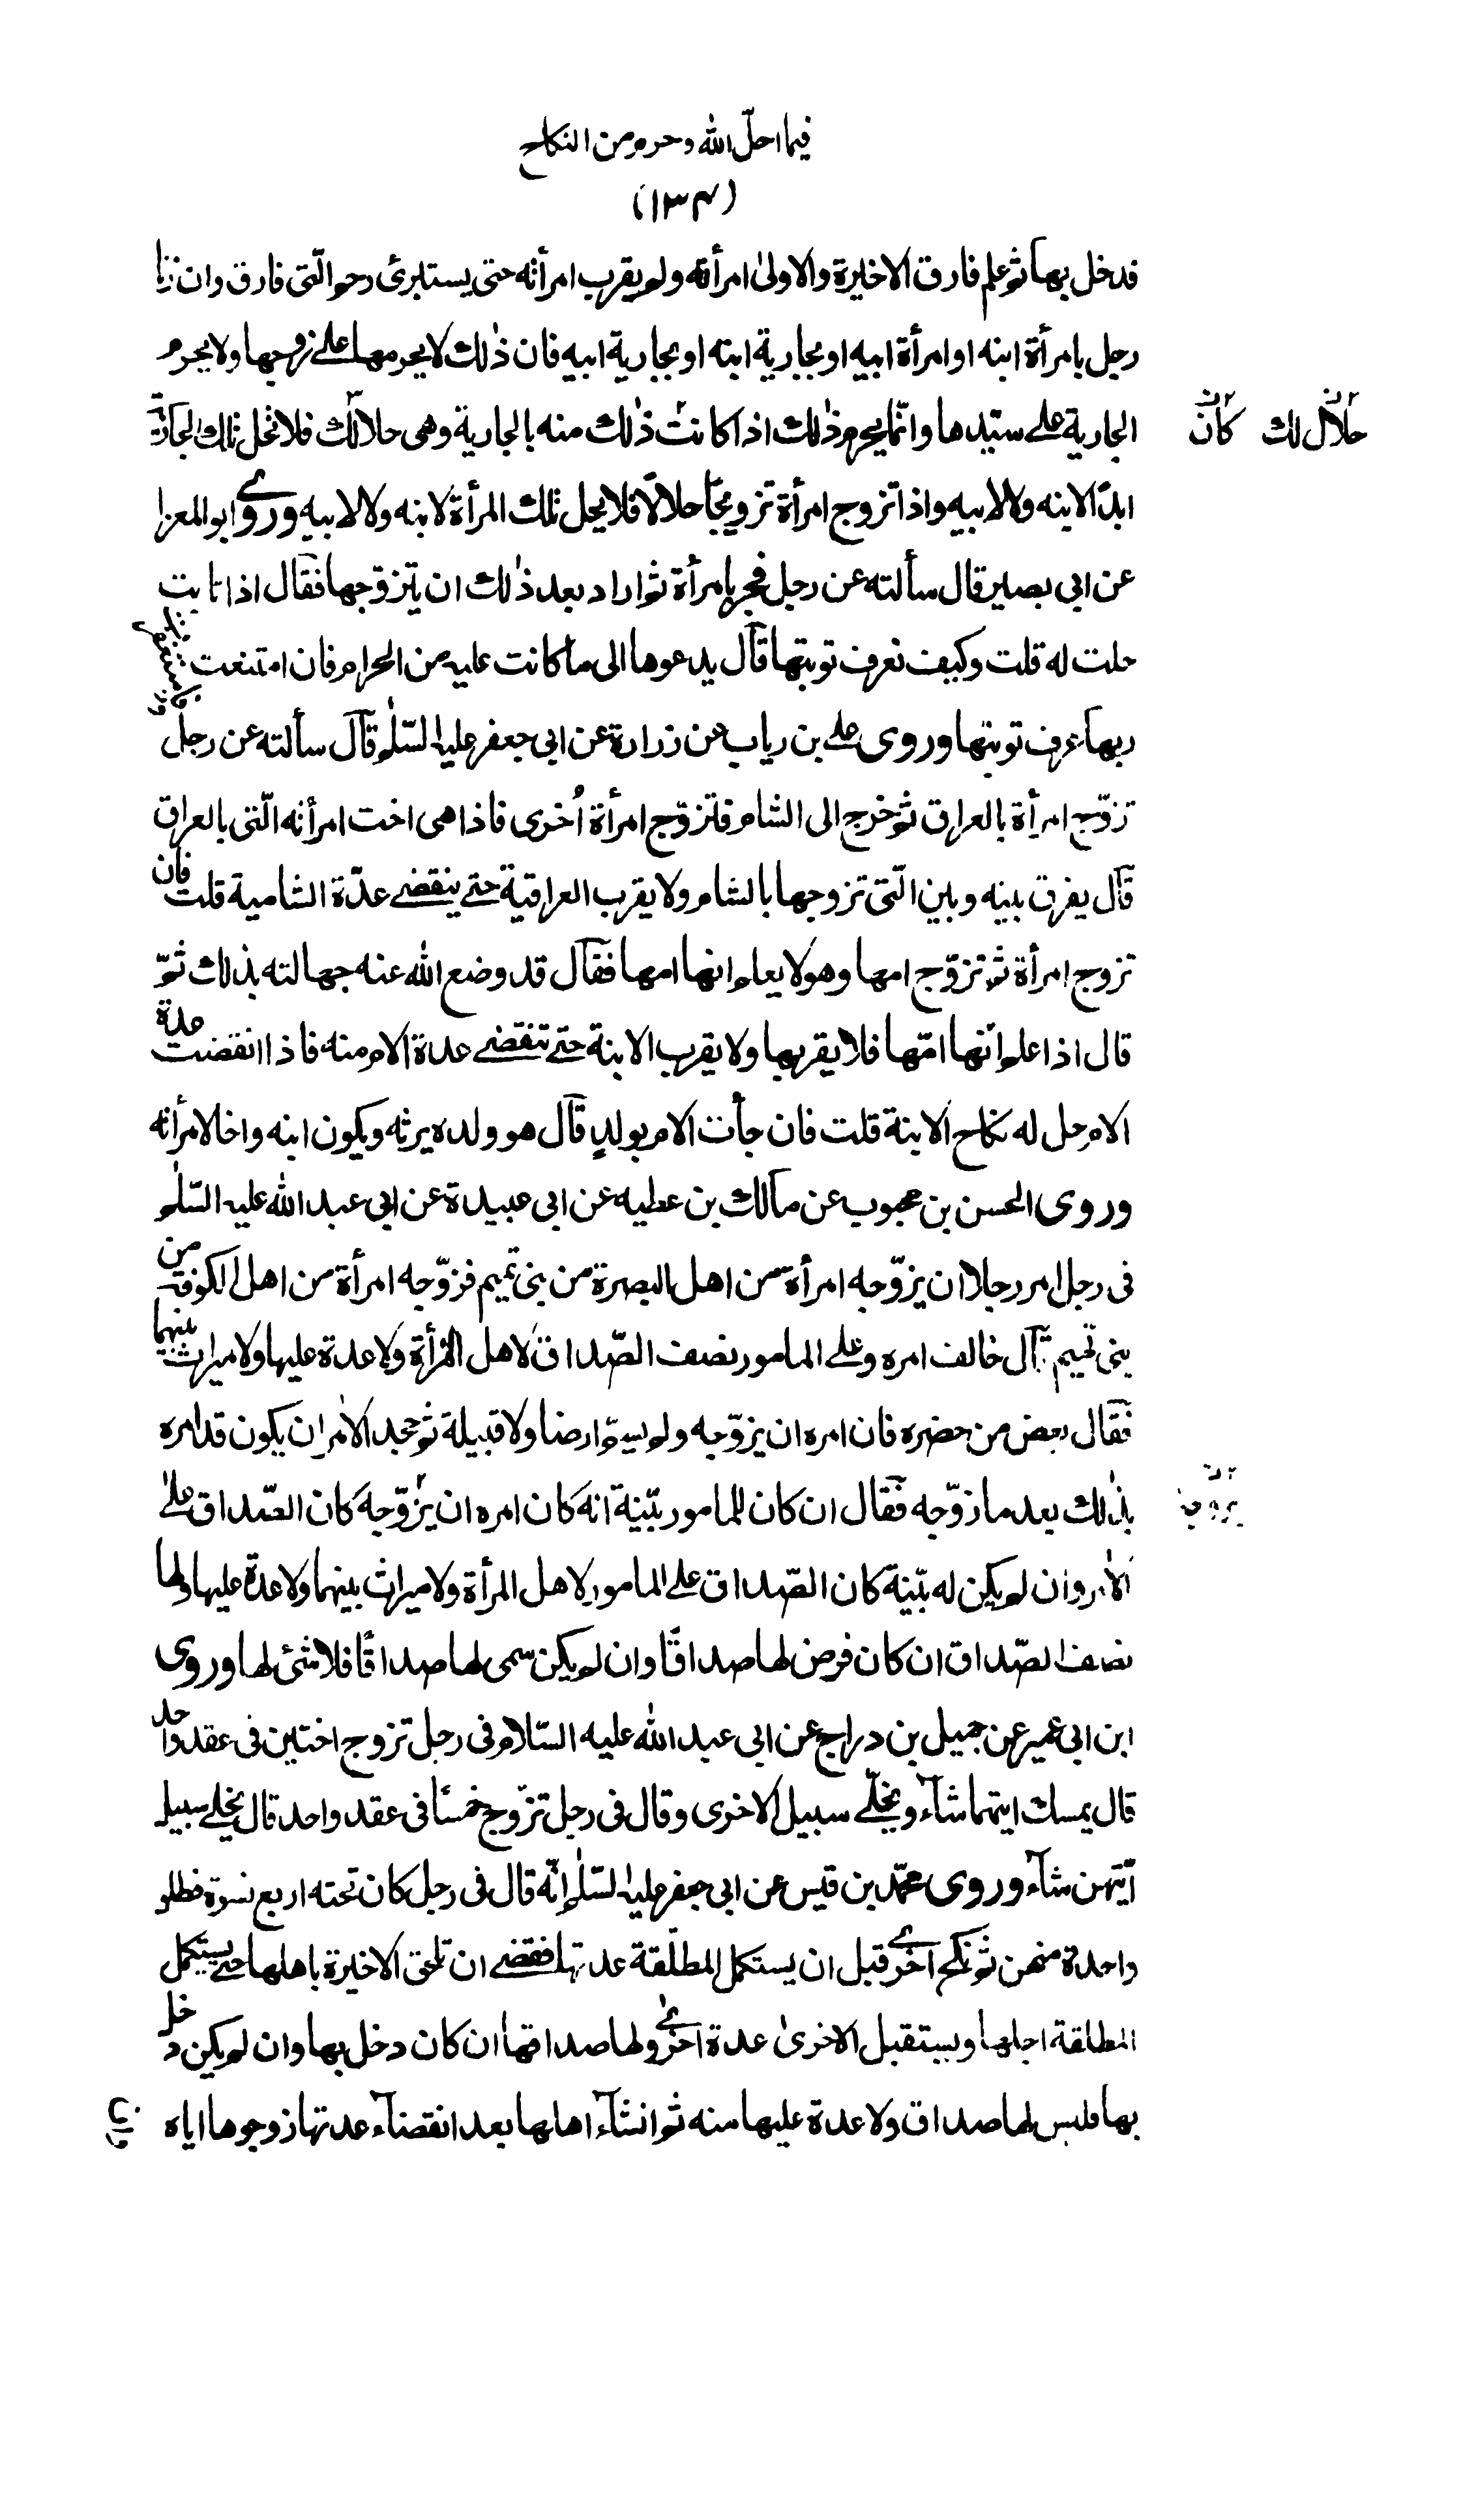 فيما احلّ الله وحرم من النكاح
(١٣٤)
فدخل بها ثم علم فارق الاخيرة والاولىٰ امرأته ولم يقرب امرأته حتى يستبرئ رحم الّتى فارق وان زنا
رجل بامرأة ابنه او امرأة ابيه او بجارية ابنه او بجارية ابيه فان ذٰلك لا يحرمها على زوجها ولا يحرم
الجارية على سيّدها وانّما يحرم ذٰلك اذا كانت ذٰلك منه بالجارية وهى حلال لك فلا تحل تلك الجارية
حلالاً لك كان
ابدًا لابنه ولا لابيه واذا تزوج امرأة تزويجًا حلالًا فلا يحل تلك المرأة لابنه ولا لابيه وروى ابو المعزا
عن ابى بصير قال سألته عن رجل فجر بامرأة ثم اراد بعد ذٰلك ان يتزوجها فقال اذا تابت
حلت له قلت وكيف تعرف توبتها قال يدعوها الى ما كانت عليه من الحرام فان امتنعت
ربها عرف توبتها وروى على بن رياب عن زرارة عن ابى جعفر عليه السّلٰم قال سألته عن رجل
تزوّج امرأة بالعراق ثم خرج الى الشام فتزوّج امرأة أُخرى فاذا هى اخت امرأته الّتى بالعراق
قال يفرق بينه وبين الّتى تزوجها بالشام ولا يقرب العراقية حتى ينقضى عدّة الشامية قلت فان
تزوج امرأة ثم تزوّج امها وهو لا يعلم انها امها فقال قد وضع الله عنه جهالته بذلك ثمّ
قال اذا علم انّها امّها فلا يقربها ولا يقرب الابنة حتى تنقضى عدة الام منه فاذا انقضت عدة
الام حل له نكاح الابنة قلت فان جأت الام بولدٍ قال هو ولده يرثه ويكون ابنه واخا لامرأته
وروى الحسن بن محبوب عن مالك بن عطيه عن ابى عبيدة عن ابى عبد الله عليه السّلٰم
فى رجل امر رجلا ان يزوّجه امرأة من اهل البصرة من بنى تميم فزوّجه امرأة من اهل الكوفة من
بنى تميم قال خالف امره وعلى المامور نصف الصّداق لاهل المرأة ولا عدة عليها ولا ميراث بينهما
فقال بعض من حضره فان امره ان يزوّجه ولم يسمّ ارضا ولا قبيلة ثم جحد الاٰمر ان يكون قد امره
بذٰلك بعد ما زوّجه فقال ان كان للمامور بيّنة انه كان امره ان يزوّجه كان الصّداق علىٰ
الاٰمر وان لم يكن له بيّنة كان الصّداق على المامور لاهل المرأة ولا ميراث بينهما ولا عدة عليها ولها
نصف الصّداق ان كان فرض لها صداقًا وان لم يكن سمى لها صداقًا فلا شئ لها وروى
ابن ابى عمير عن جميل بن دراج عن ابى عبد الله عليه السّلام فى رجل تزوج اختين فى عقد واحد
قال يمسك ايتهما شاۤء ويخلّى سبيل الاخرى وقال فى رجل تزوّج خمسًا فى عقد واحد قال يخلى سبيل
ايّتهن شاۤء وروى محمّد بن قيس عن ابى جعفر عليه السّلٰم انّه قال فى رجل كان تحته اربع نسوة فطلق
واحدة منهن ثم نكح اخرى قبل ان يستكمل المطلّقة عدتها فقضى ان تلحق الاخيرة باهلها حتى يستكمل
المطلقة اجلها ويستقبل الاخرىٰ عدة اخرى ولها صداقها ان كان دخل بها وان لم يكن دخل
بها فليس لها صداق ولا عدة عليها منه ثم ان شاۤء اهلها بعد انقضاۤء عدتها زوجوها اياه